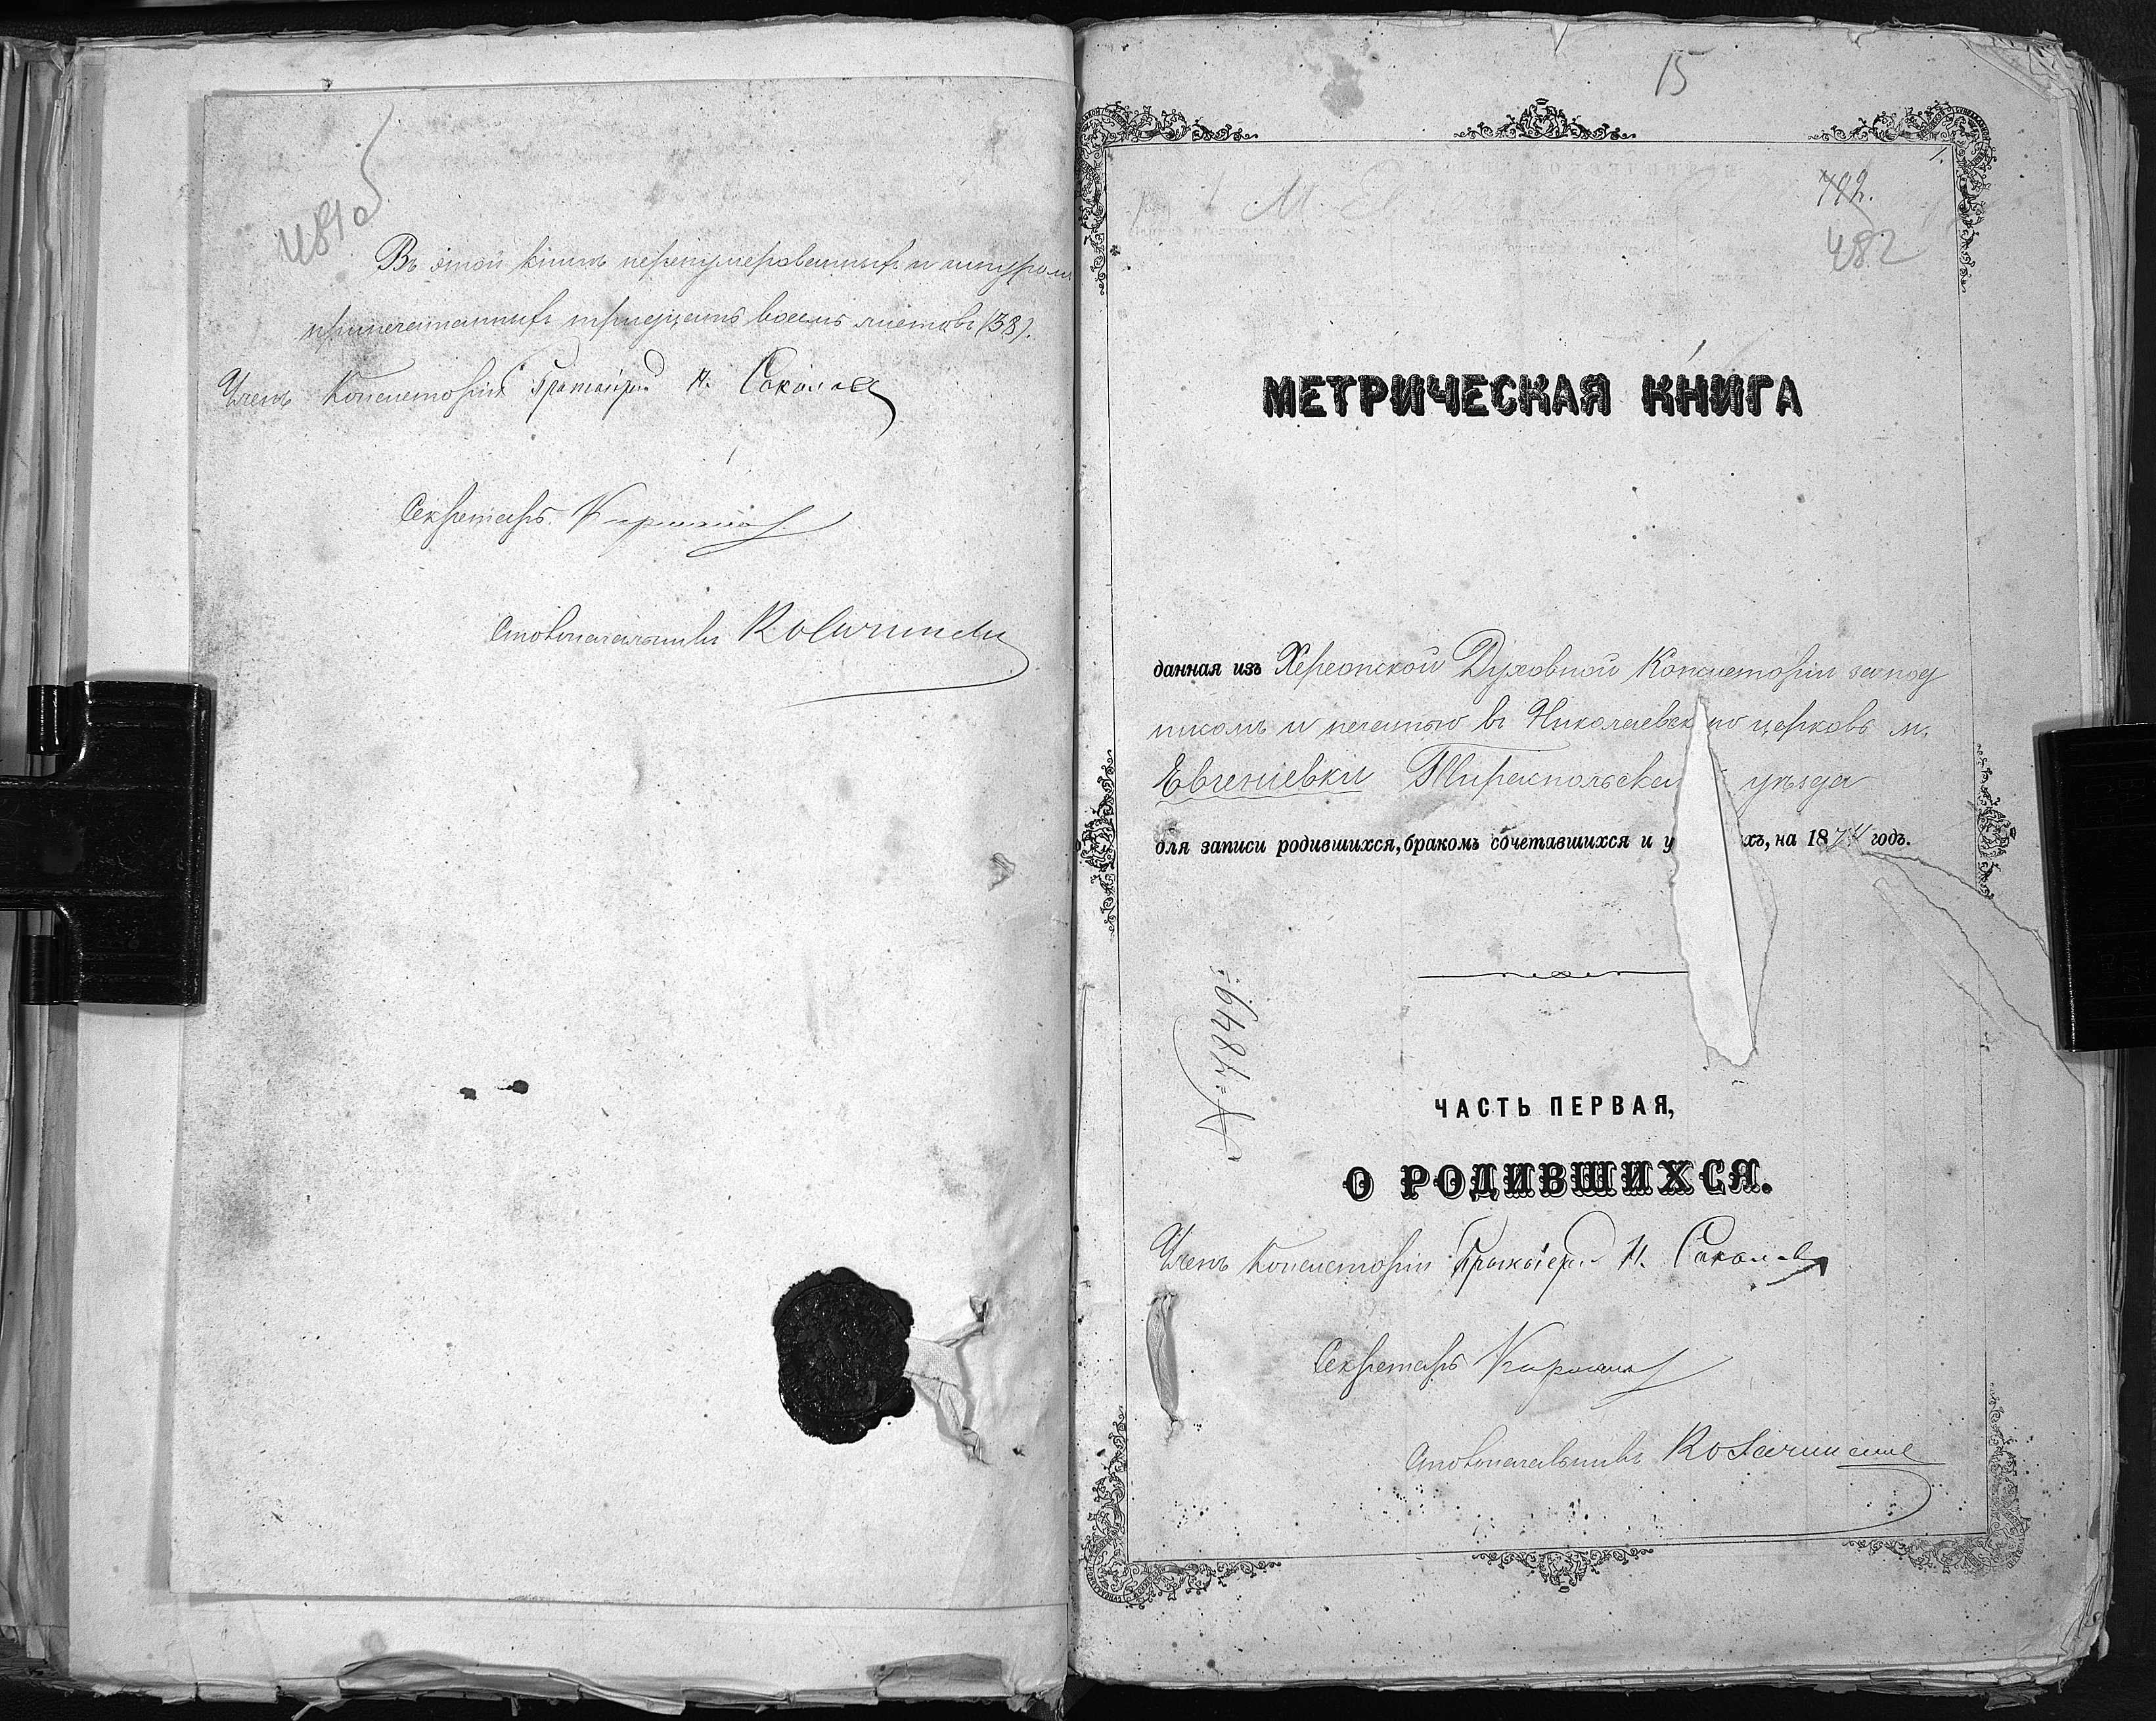 481об
Въ этой книгѣ перенумерованныхъ и шнуромъ
припечатанныхъ тридцать восемь листовъ (38).
Членъ Консисторіи Протоіерей Н. Соколовъ
Секретарь
Столоначальникъ
15
1.
482.
482
МЕТРИЧЕСКАЯ КНИГА
данная изъ Херсонской Духовной Консисторіи за под
писомъ и печатью въ Николаевскую церковь м.
Евгеніевки Тираспольска уѣзда
для записи родившихся, бракомъ сочетавшихся и у хъ, на 1874 годъ.
№ 7849.
ЧАСТЬ ПЕРВАЯ,
О РОДИВШИХСЯ.
Членъ Консисторіи Протоіерей Н. Соколовъ
Секретарь
Столоначальникъ